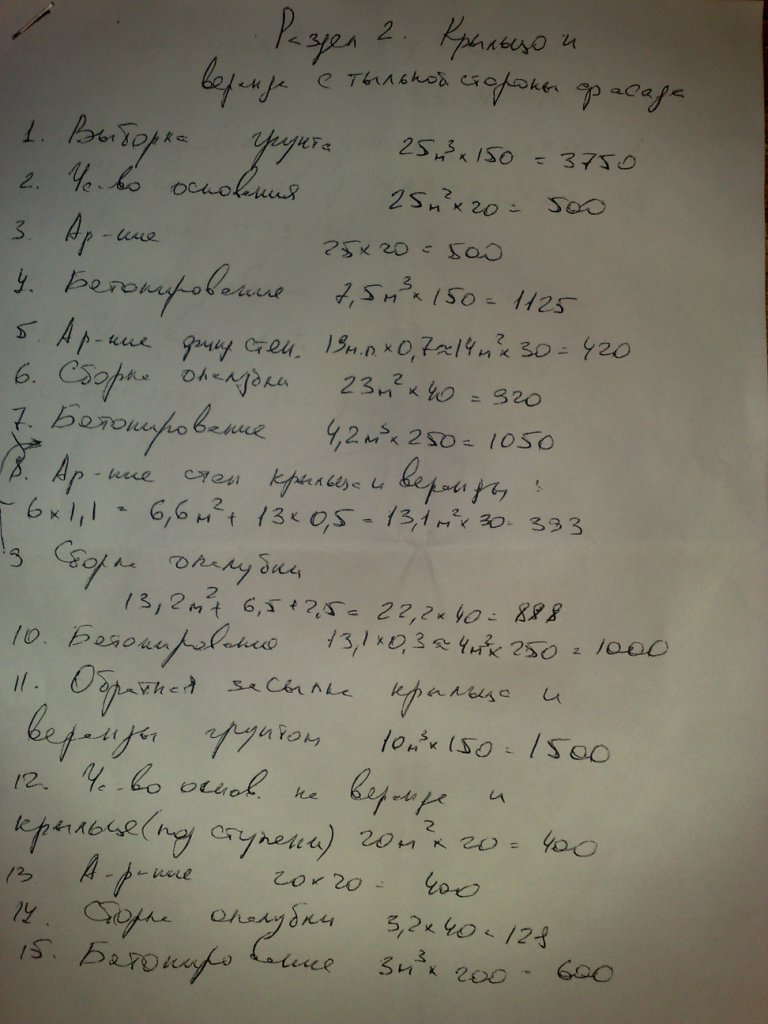 Раздел 2. Крыльцо и
веранда с тыльной стороны фасада
1. Выборка грунта 25м³×150 = 3750
2. Ус-во основания 25м²×20 = 500
3. Ар-ние 25×20 = 500
4. Бетонирование 7,5м³×150 = 1125
5. Ар-ние фунд стен. 19м.п.×0,7≈14м²×30 = 420
6. Сборка опалубки 23м²×40 = 920
7. Бетонирование 4,2м³×250 = 1050
8. Ар-ние стен крыльца и веранды :
6×1,1 = 6,6м²+ 13×0,5 = 13,1м²×30 = 393
9 Сборка опалубки
13,2м²+ 6,5+2,5 = 22,2×40 = 888
10. Бетонировано 13,1×0,3≈4м³×250 = 1000
11. Обратная засыпка крыльца и
веранды грунтом 10м³×150 = 1500
12. Ус-во основ. на веранде и
крыльце (под ступени) 20м²×20 = 400
13 А-р-ние 20×20 = 400
14. Сборка опалубки 3,2×40 = 128
15. Бетонирование 3м³×200 = 600